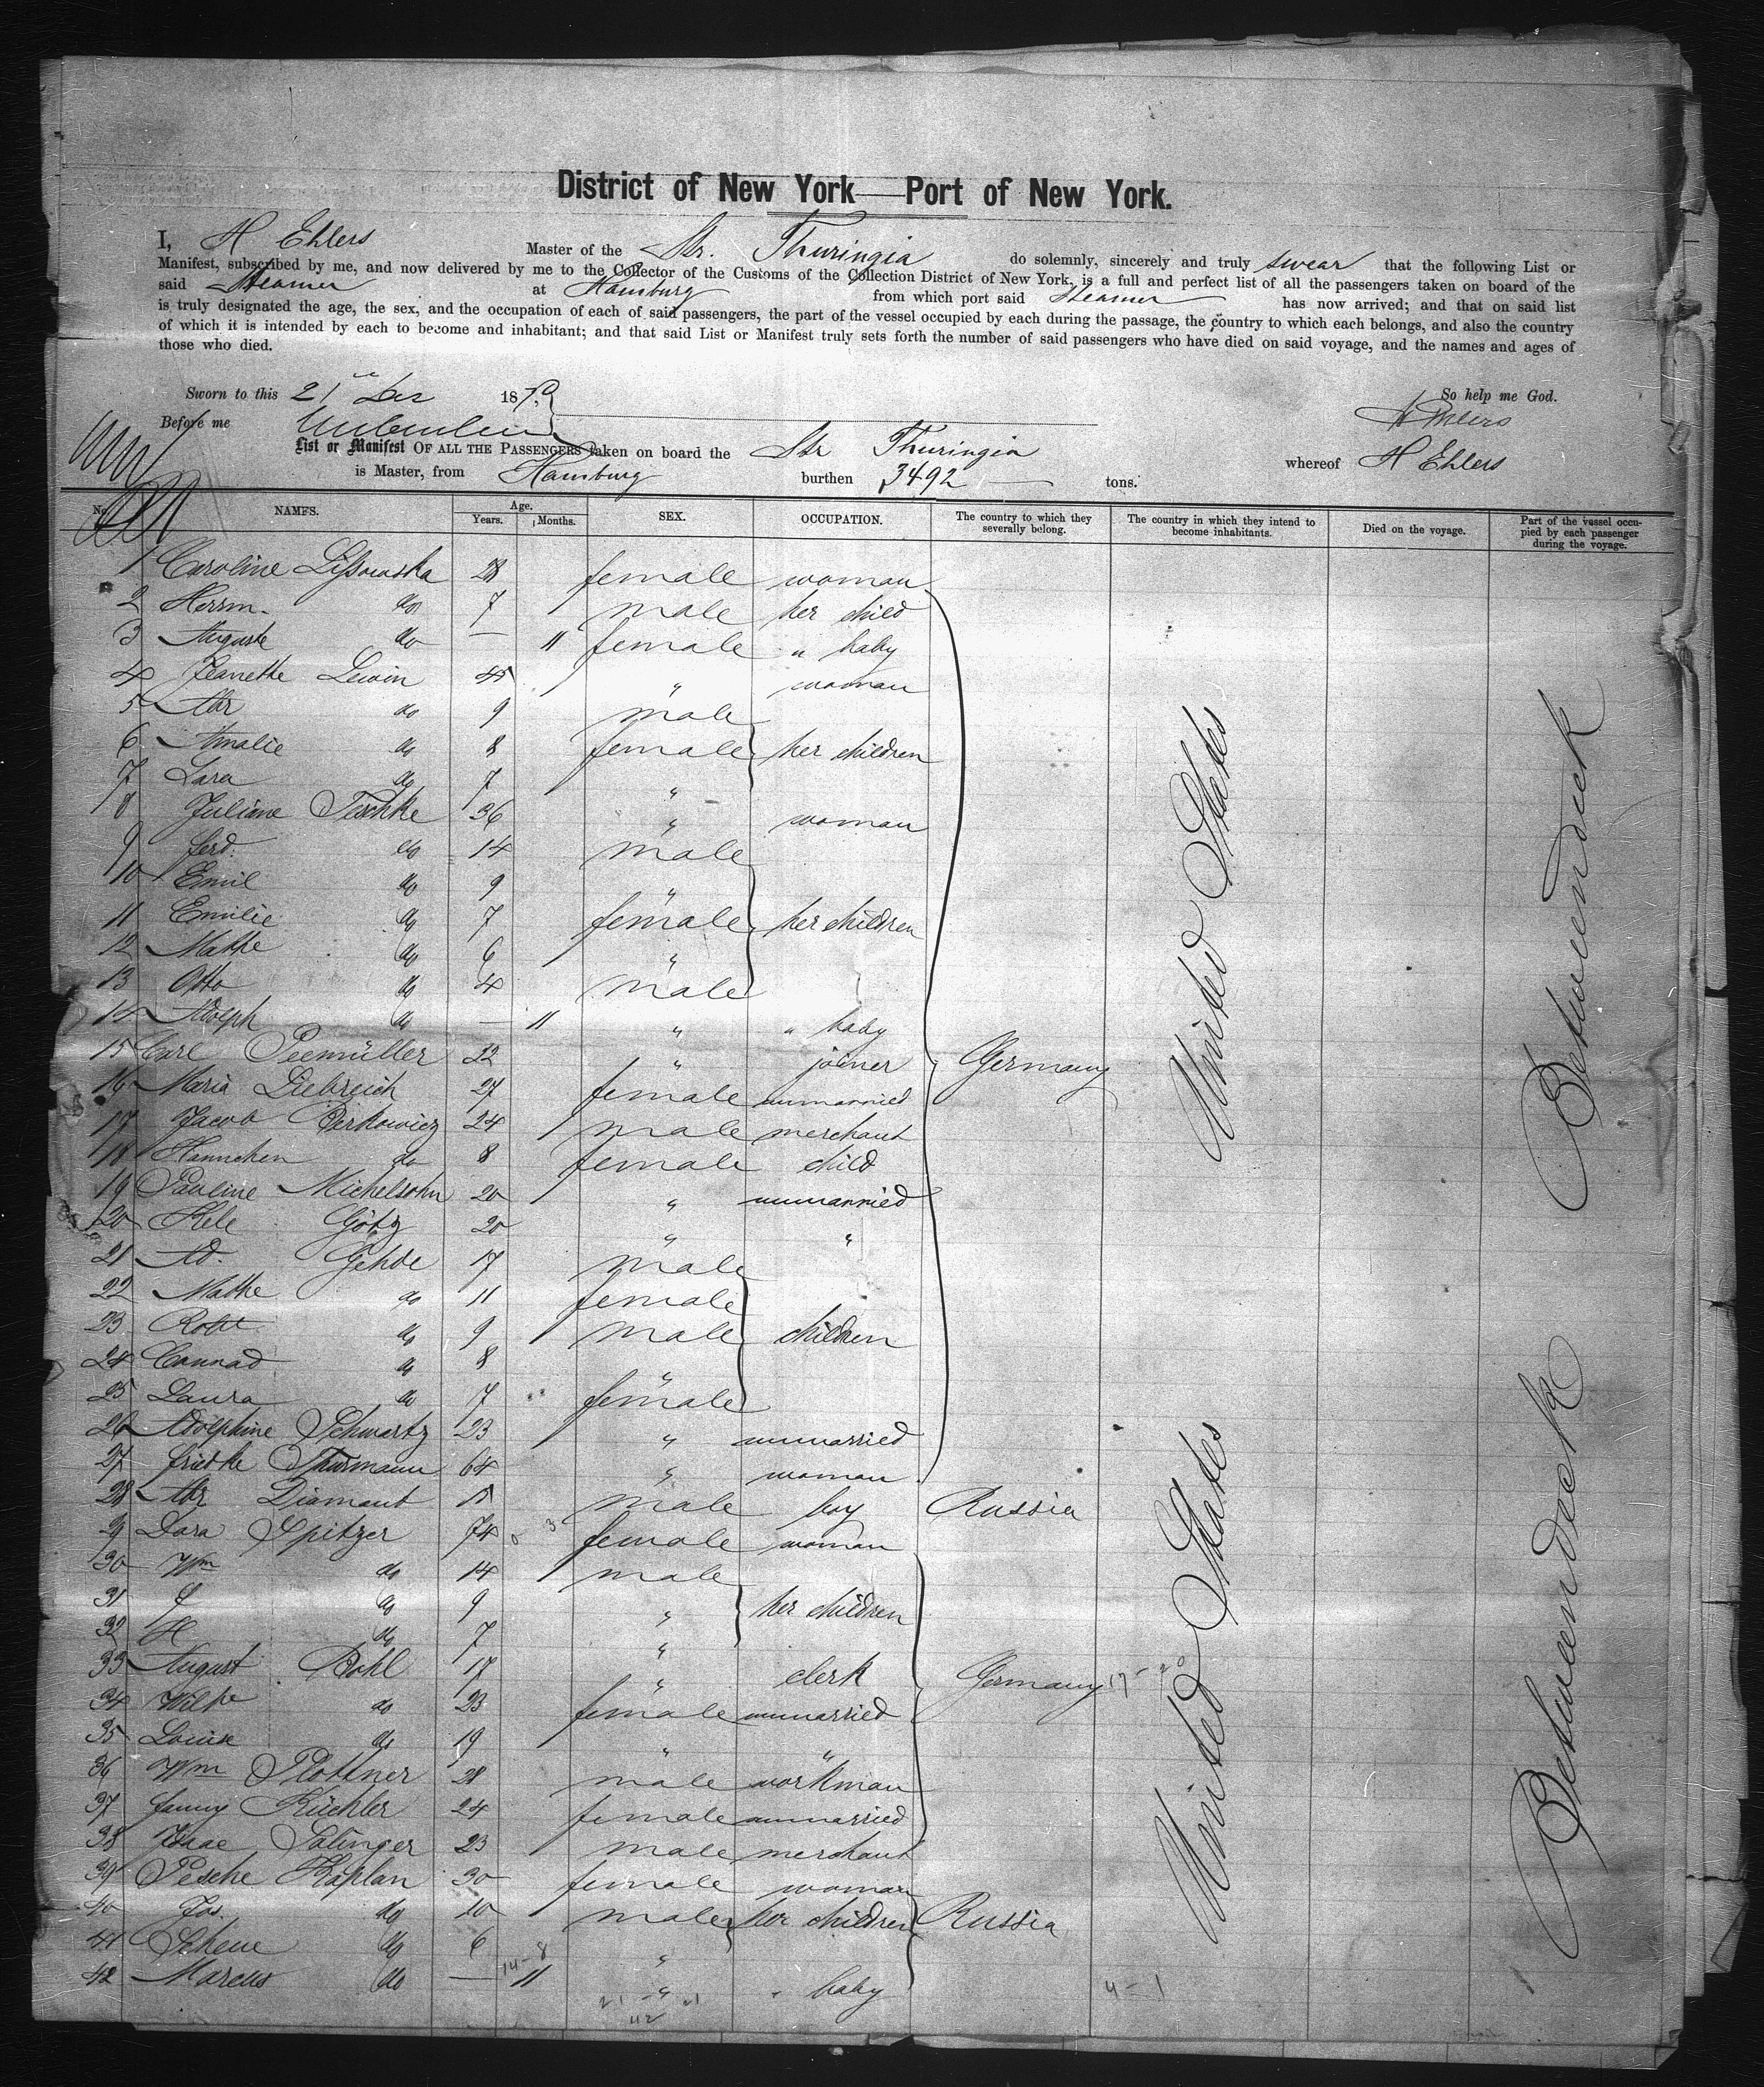 District of New York—Port of New York.
I, H Ehlers Master of the Str. Thuringia do solemnly, sincerely and truly swear that the following List or
Manifest, subscribed by me, and now delivered by me to the Collector of the Customs of the Collection District of New York, is a full and perfect list of all the passengers taken on board of the
said Steamer at Hamburg from which port said Steamer has now arrived; and that on said list
is truly designated the age, the sex, and the occupation of each of said passengers, the part of the vessel occupied by each during the passage, the country to which each belongs, and also the country
of which it is intended by each to become and inhabitant; and that said List or Manifest truly sets forth the number of said passengers who have died on said voyage, and the names and ages of
those who died.
Sworn to this 21 Dec 1879 So help me God.
Before me H Ehlers
List or Manifest OF ALL THE PASSENGERS taken on board the Str Thuringia whereof H Ehlers
is Master, from Hamburg burthen 3492 tons.
No. NAMES. Age. Years. Months. SEX. OCCUPATION. The country to which they severally belong. The country in which they intend to become inhabitants. Died on the voyage. Part of the vessel occupied by each passenger during the voyage.
1 Caroline Lissowska 28 female woman
2 Herrm. do 7 male her child
3 Auguste do — 11 female " baby
4 Jeanette Lewin 45 " woman
5 Abr do 9 male
6 Amalie do 8 female her children
7 Sara do 7 "
8 Juliane Teschke 36 " woman
9 Ferd. do 14 male
10 Emil do 9 "
11 Emilie do 7 female her children
12 Mathe do 6 "
13 Otto do 4 male
14 Adolph do — 11 " " baby
15 Carl Peemüller 22 " joiner Germany
16 Maria Liebreich 27 female unmarried
17 Jacob Berkowicz 24 male merchant
18 Hannchen do 8 female child
19 Pauline Michelsohn 20 " unmarried
20 Hele Götz 20 " "
21 Ad. Gehde 17 male
22 Mathe do 11 female
23 Robt do 9 male children
24 Conrad do 8 "
25 Laura do 7 female
26 Adolphine Schwartz 23 " unmarried
27 Friedke Thurmann 64 " woman
28 Abr Diamant 15 male boy Russia
29 Dora Spitzer 74 female woman
30 Wm do 14 male
31 do 9 " her children
32 H do 7 "
33 August Bohl 17 " clerk Germany
34 Wilhe do 23 female unmarried
35 Louise do 19 " "
36 Wm Plottner 28 male workman
37 Fanny Küchler 24 female unmarried
38 Isaac Salinger 23 male merchant
39 Pesche Kaplan 30 female woman
40 Jos. do 10 male her children Russia
41 Schene do 6 "
42 Marcus do — 11 " " baby
United States
United States
Betweendeck
Betweendeck
14-8
4-1
42